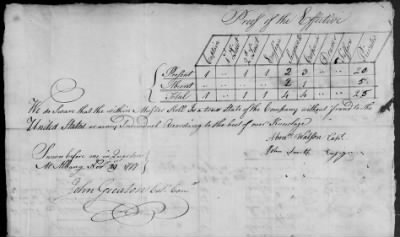 Proof of the Effective
Captain 1 Lieut 2 Lieut Ensign Serjeants Corporals Drum Fifer Privates
Present 1 1 1 1 2 3 20
Absent 5
Total 1 1 1 1 2 4 25
We do Swear that the within Muster Roll Is a true State of the Company without fraud to the
United States or any Individual According to the best of our Knowlage
Abrm Watson Capt.
John Smith Ensign
Sworn before me in Quarters
At Albany Novr 1777
John Greaton Col. Com